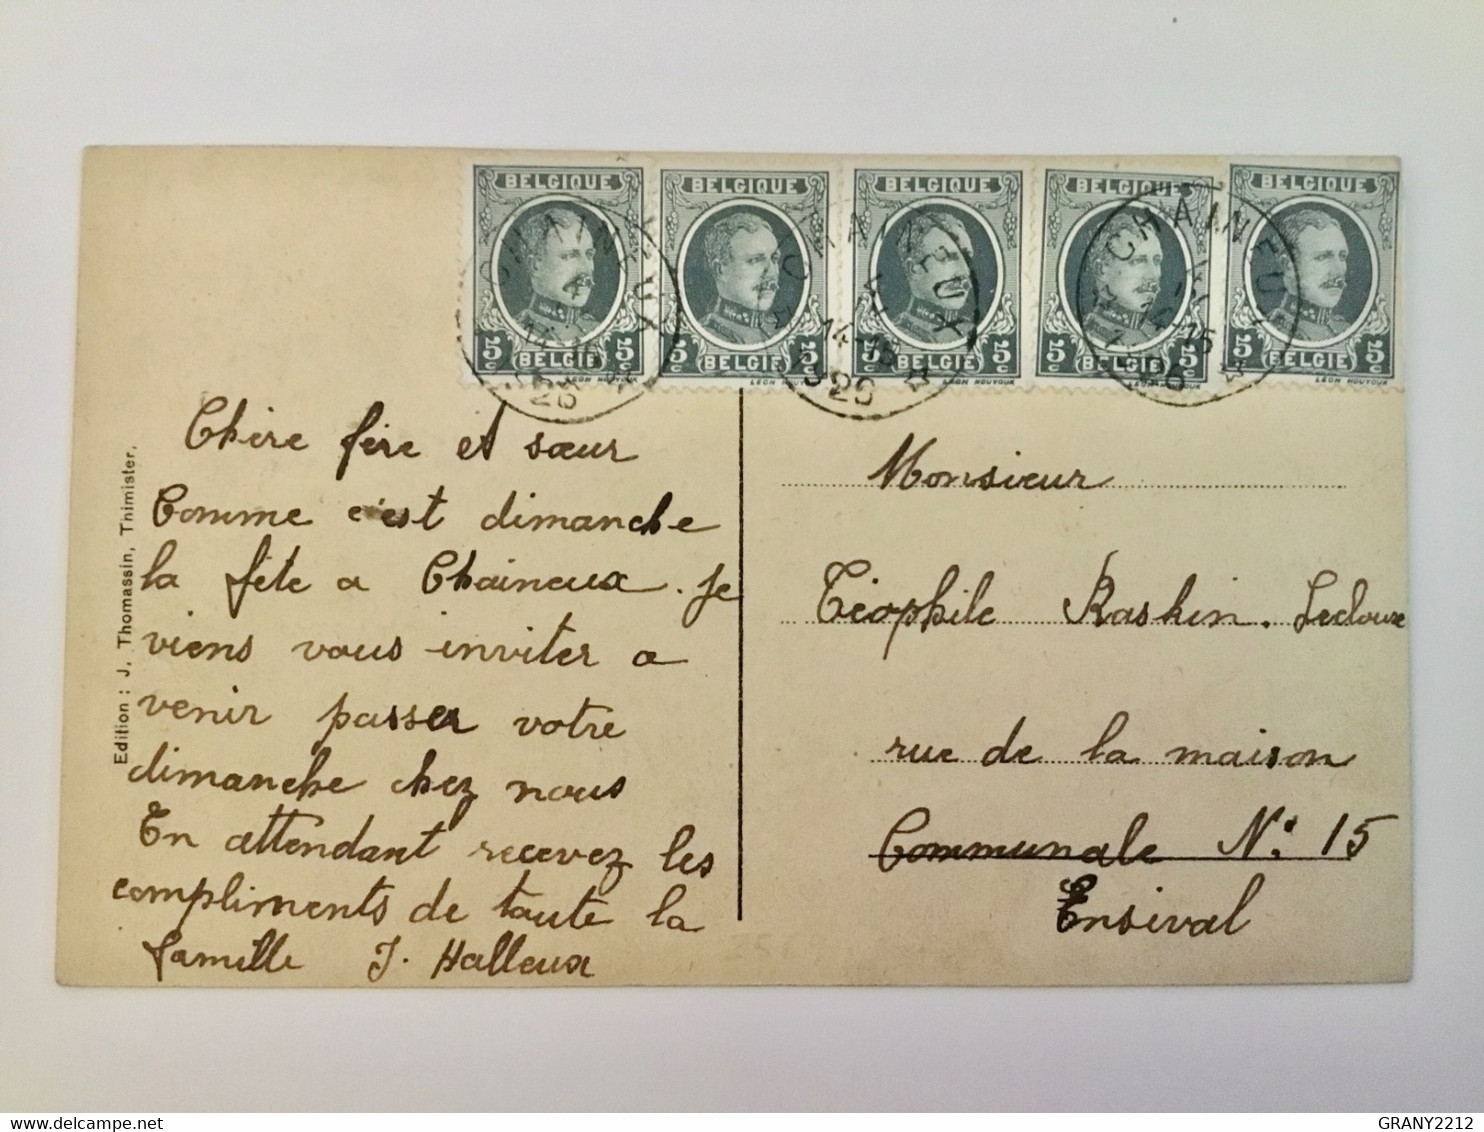 BELGIQUE BELGIQUE BELGIQUE BELGIQUE BELGIQUE
5c BELGIE 5c 5c BELGIE 5c 5c BELGIE 5c 5c BELGIE 5c 5c BELGIE 5c
LÉON HOUYOUX LÉON HOUYOUX LÉON HOUYOUX LÉON HOUYOUX
CHAINEUX 14-15 1926
CHAINEUX 14-15 1926
CHAINEUX 14-15 1926
Edition : J. Thomassin, Thimister.
Chère fère et sœur
Comme c'est dimanche
la fête a Chaineux. Je
viens vous inviter a
venir passer votre
dimanche chez nous
En attendant recevez les
compliments de toute la
famille J. Halleux
Monsieur
Téophile Raskin. Lecloux
rue de la maison
Communale N° 15
Ensival
GRANY2212